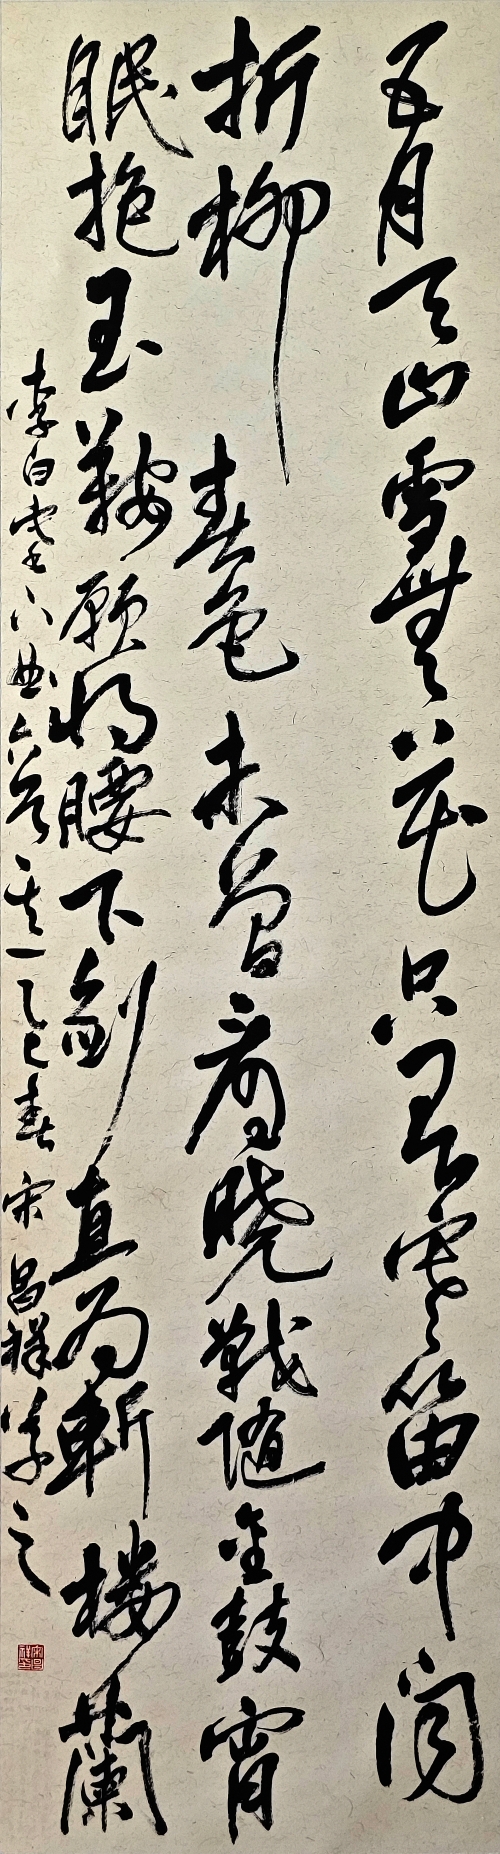 五月天山雪無花只有寒笛中闻
折柳春色未曾看曉戰隨金鼓宵
眠抱玉鞍願將腰下劍直為斬樓蘭
李白塞下曲六首其一乙巳春宋昌祥之